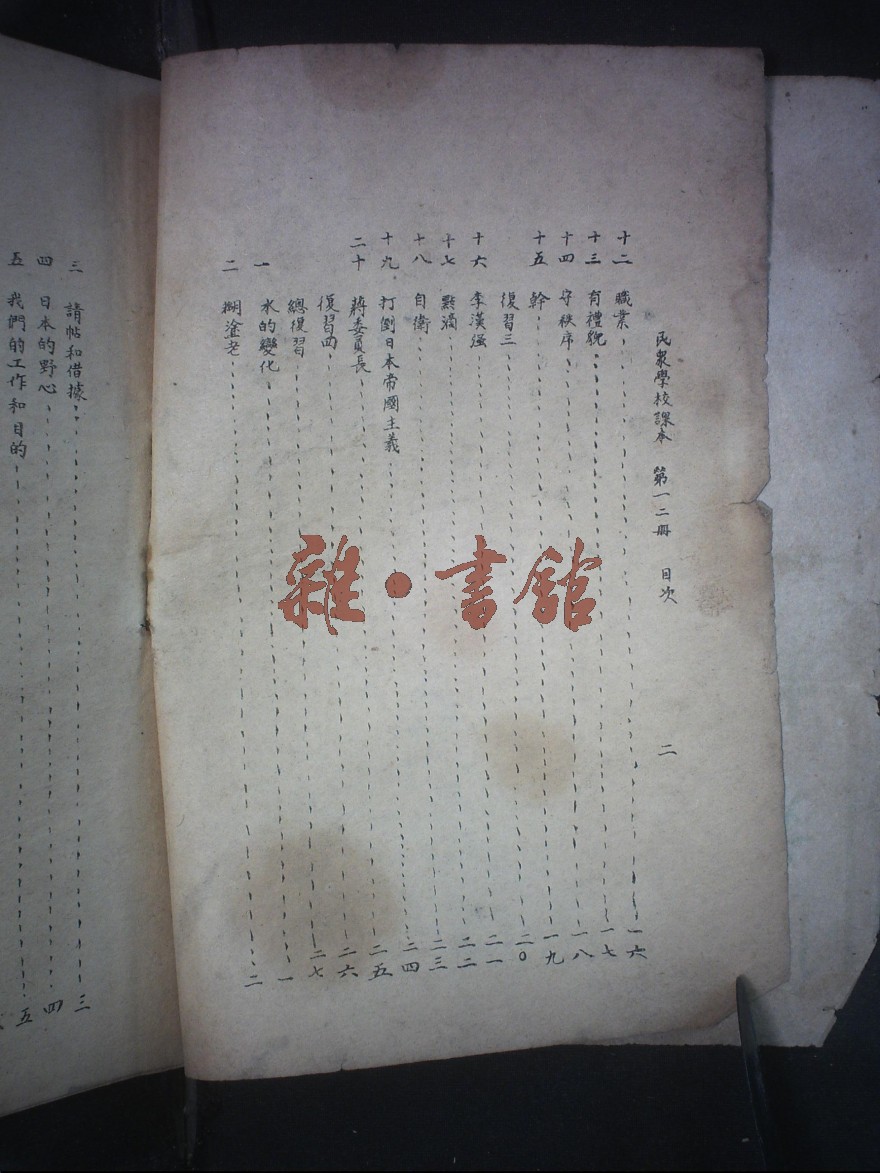 民衆學校課本 第一二冊 目次 二
十二 職業 一六
十三 有禮貌 一七
十四 守秩序 一八
十五 幹 一九
復習三 二〇
十六 李漢强 二一
十七 點滴 二二
十八 自衛 二三
十九 打倒日本帝國主義 二四
二十 蔣委員長 二五
復習四 二六
總復習 二七
一 水的變化 一
二 糊塗老 二
三 請帖和借據 三
四 日本的野心 四
五 我們的工作和目的 五
雜·書館